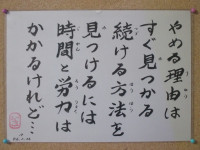 やめる理由は
すぐ見つかる
続ける方法を
見つけるには
時間と労力は
かかるけれど…